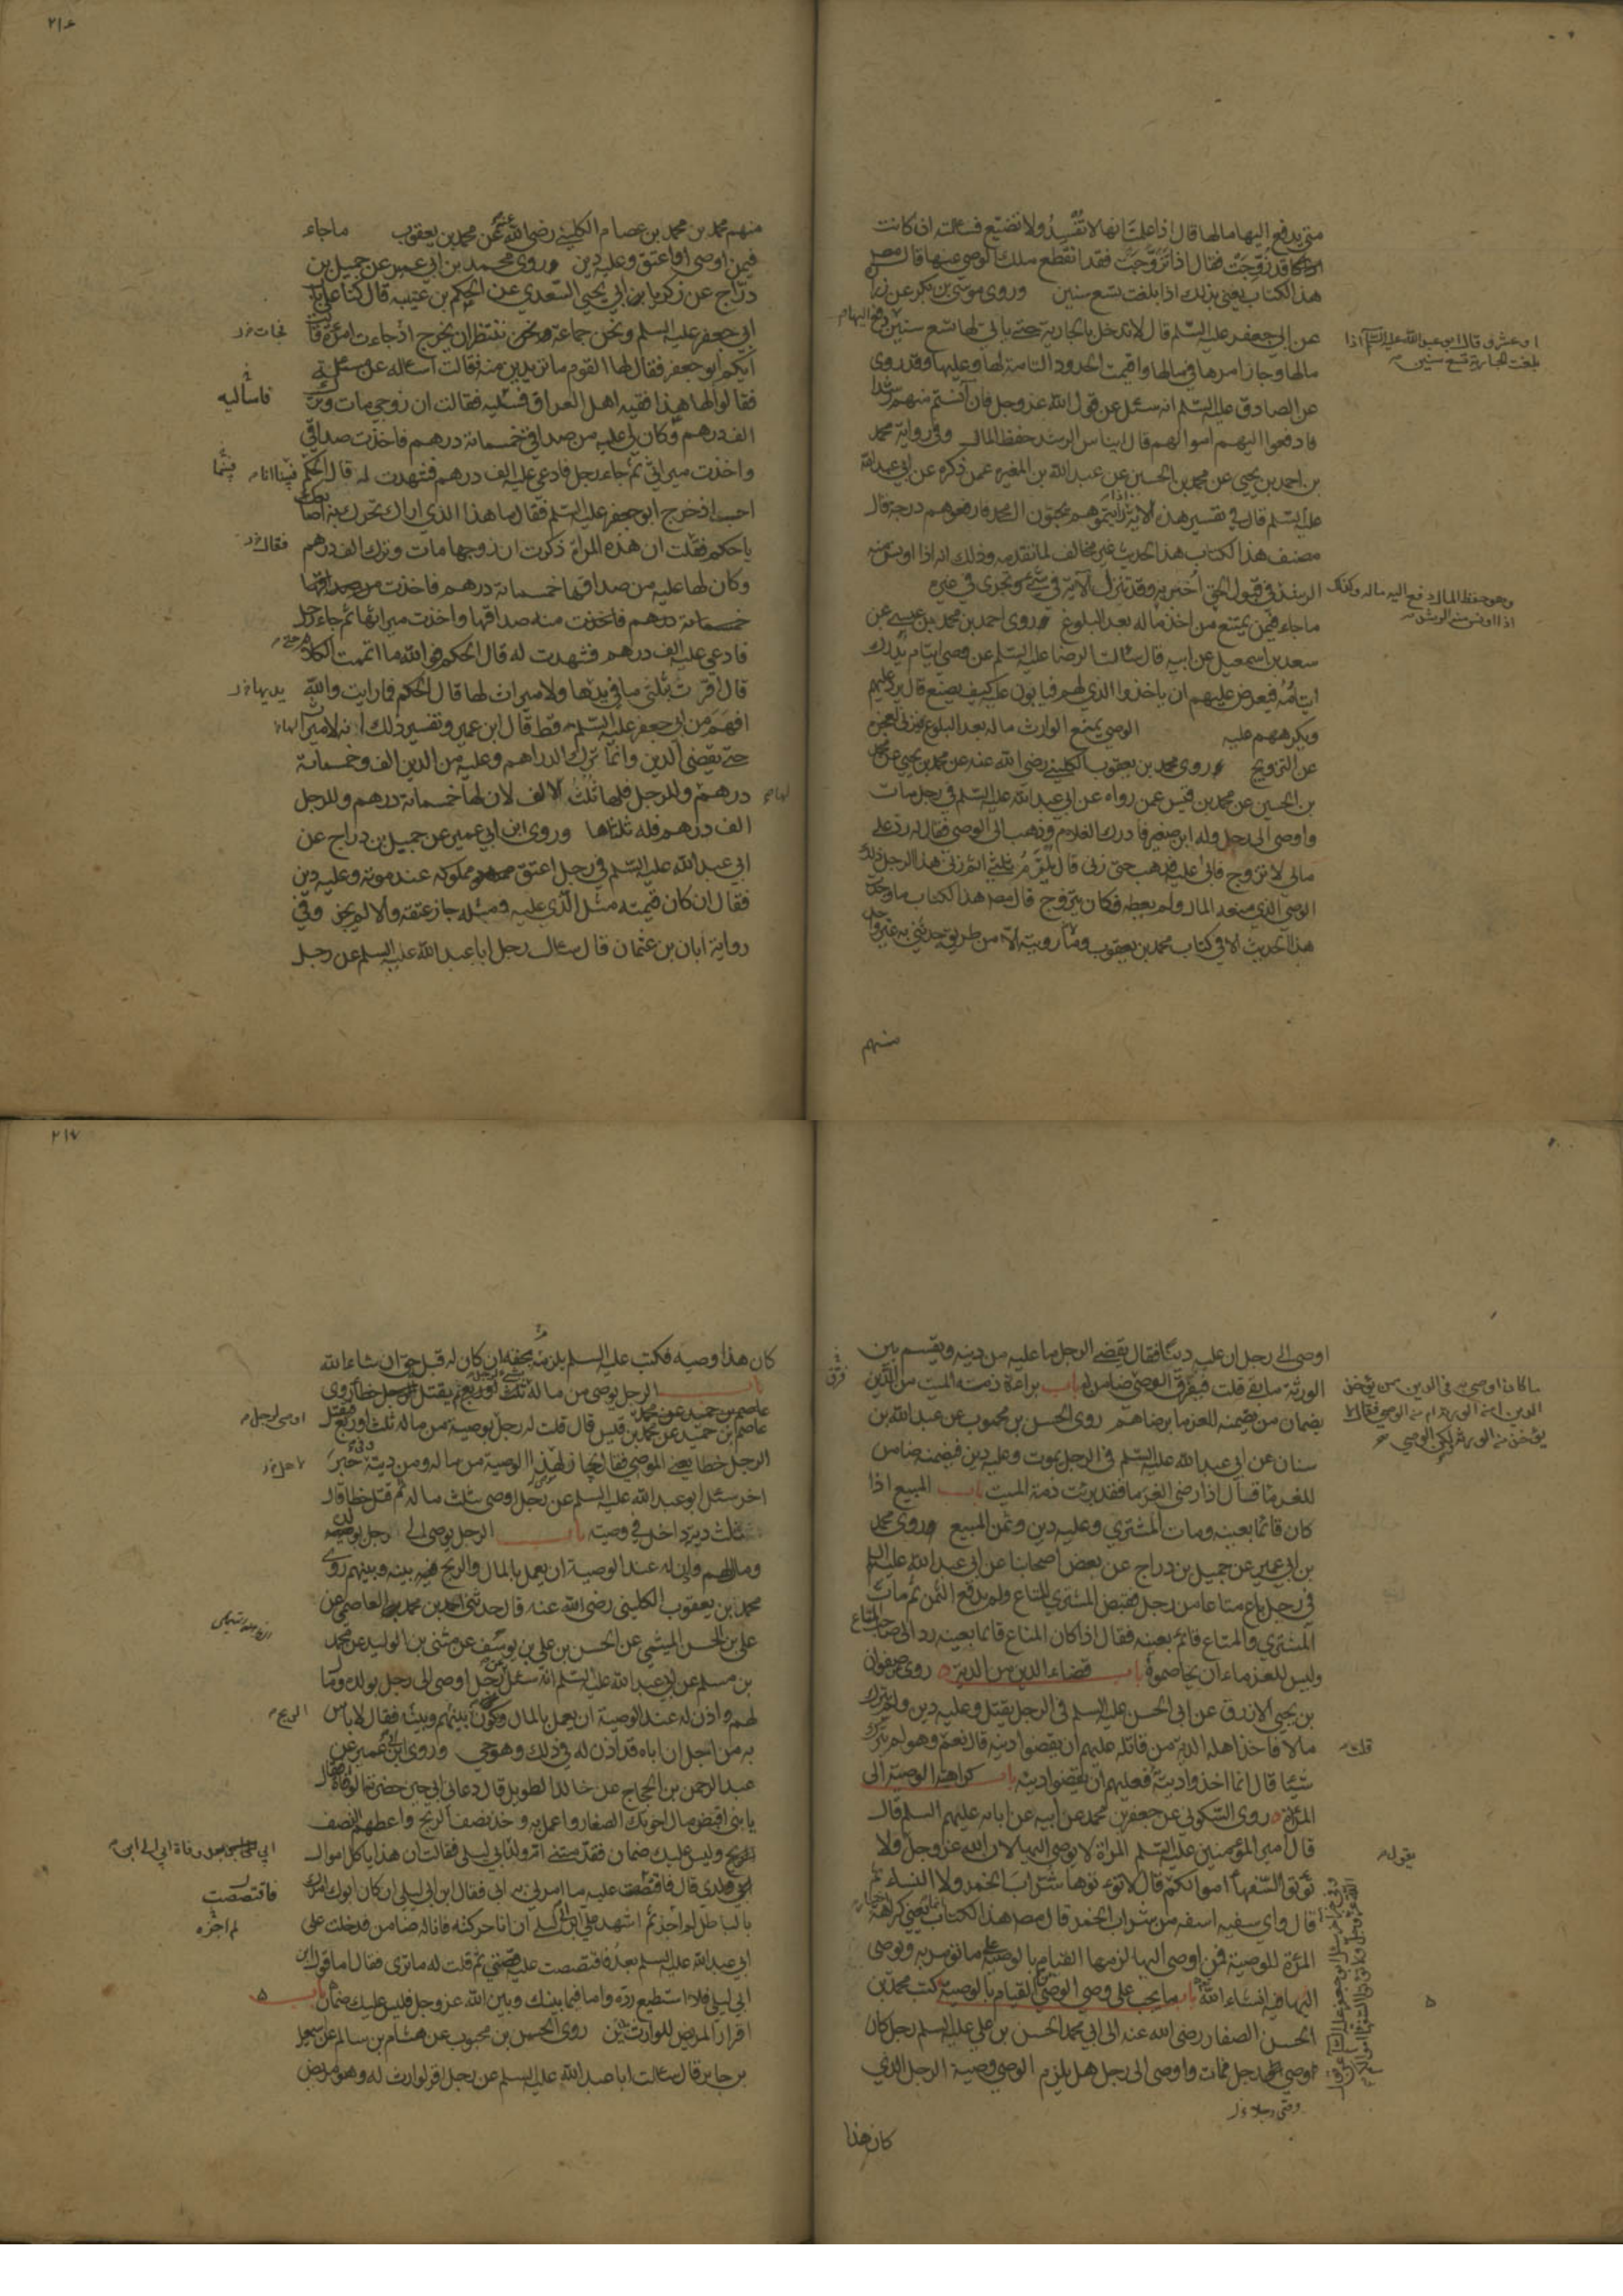 متى يدفع اليها مالها قال اذا علمت انها لا تفسد ولا تضيع فسالته ان كانت
قد زوجت فقال اذا تزوجت فقد انقطع ملك الوصي عنها قال مصنف
هذا الكتاب يعني بذلك اذا بلغت تسع سنين وروى موسى بن بكر عن زرارة
عن ابي جعفر عليه السلم قال لا تدخل بالجارية حتى ياتي لها تسع سنين
او عشر وقال ابو عبد الله عليه السلم اذا
بلغت الجارية تسع سنين
دفع اليها
مالها وجاز امرها في مالها واقيمت الحدود التامة لها وعليها وقد روى
عن الصادق عليه السلم انه سئل عن قول الله عز وجل فان آنستم منهم رشدا
فادفعوا اليهم اموالهم قال ايناس الرشد حفظ المال وفي رواية محمد
بن احمد بن يحيى عن محمد بن الحسين عن عبد الله بن المغيره عمن ذكره عن ابي عبد الله
عليه السلم قال في تفسير هذه الاية اذا رايتموهم يحبون ال محمد فارفعوهم درجة قال
مصنف هذا الكتاب هذا الحديث غير مخالف لما تقدمه وذلك انه اذا اونس منه
الرشد في قبول الحق اختبر به وقد تنزل الاية في شيء وتجري في غيره
وهو حفظ المال دفع اليه ماله وكذلك
اذا اونس منه الرشد
ماجاء فيمن يمتنع من اخذ ماله بعد البلوغ روى احمد بن محمد بن عيسى عن
سعد بن اسمعيل عن ابيه قال سالت الرضا عليه السلم عن وصي ايتام يدرك
ايتامه فيعرض عليهم ان ياخذوا الذي لهم فيابون عليه كيف يصنع قال يرد عليهم
ويكرههم عليه الوصي يمنع الوارث ماله بعد البلوغ فيزني لعجزه
عن التزويج روى محمد بن يعقوب الكليني رضي الله عنه عن محمد بن يحيى عن محمد
بن الحسين عن محمد بن قيس عمن رواه عن ابي عبد الله عليه السلم في رجل مات
واوصى الى رجل وله ابن صغير فادرك الغلام وذهب الى الوصي فقال له رد علي
مالي لا تزوج فابى عليه فذهب حتى زنى قال يلزم ثلثي اثم زنى هذا الرجل ذلك
الوصي الذي منعه المال ولم يعطه فكان يتزوج قال مصنف هذا الكتاب ما وجدت
هذا الحديث الا في كتاب محمد بن يعقوب وما رويته الا من طريقه حدثني به غير واحد
منهم
منهم محمد بن محمد بن عصام الكليني رضي الله عنه عن محمد بن يعقوب ماجاء
فيمن اوصى او اعتق وعليه دين وروى محمد بن ابي عمير عن جميل بن
دراج عن زكريا بن ابي يحيى السعدي عن الحكم بن عتيبه قال كنا على باب
ابي جعفر عليه السلم ونحن جماعة ننتظر ان يخرج اذ جاءت امراة فقالت
ايكم ابو جعفر فقال لها القوم ما تريدين منه فقالت اساله عن مسئلة
فقالوا لها هذا فقيه اهل العراق فسليه فقالت ان زوجي مات وترك
فاسأليه
الف درهم وكان لي عليه من صداقي خمسمائة درهم فاخذت صداقي
واخذت ميراثي ثم جاء رجل فادعى عليه الف درهم فشهدت له قال الحكم فبينا انا
احسب اذ خرج ابو جعفر عليه السلم فقال ما هذا الذي اراك تحرك به اصابعك
يا حكم فقلت ان هذه المراة ذكرت ان زوجها مات وترك الف درهم
وكان لها عليه من صداقها خمسمائة درهم فاخذت
خمسمائة درهم فاخذت منه صداقها واخذت ميراثها ثم جاء رجل
فادعى عليه الف درهم فشهدت له قال الحكم فوالله ما اتممت الكلام
قال اقرت بثلثي ما في يدها ولا ميراث لها قال الحكم فما رايت والله
افهم من ابي جعفر عليه السلم قط قال ابن عمير وتفسير ذلك انه لا ميراث لها
حتى يقضى الدين وانما ترك الدراهم وعليه من الدين الف وخمسمائة
درهم وللرجل فلها ثلث الالف لان لها خمسمائة درهم وللرجل
الف درهم فله ثلثاها وروى ابن ابي عمير عن جميل بن دراج عن
ابي عبد الله عليه السلم في رجل اعتق مملوكه عند موته وعليه دين
فقال ان كان قيمته مثل الذي عليه ومثله جاز عتقه والا لم يجز وفي
رواية ابان بن عثمان قال سال رجل ابا عبد الله عليه السلم عن رجل
اوصى الى رجل ان عليه دينا فقال يقضي الرجل ما عليه من دينه ويقسم بين
الورثة ما بقي قلت فيفرق الوصي
ما كان اوصى به في الدين ممن يؤخذ
الدين امن الورثة ام من الوصي فقال لا
يؤخذ من الورثة ولكن الوصي
ضامن له باب براءة ذمة الميت من الدين
بضمان من يضمنه للغرما برضاهم روى الحسن بن محبوب عن عبد الله بن
سنان عن ابي عبد الله عليه السلم في الرجل يموت وعليه دين فيضمنه ضامن
للغرما قال اذا رضي الغرما فقد برئت ذمة الميت باب المبيع اذا
كان قائما بعينه ومات المشتري وعليه دين وثمن المبيع وروى محمد
بن ابي عمير عن جميل بن دراج عن بعض اصحابنا عن ابي عبد الله عليه السلم
في رجل باع متاعا من رجل فقبض المشتري المتاع ولم يدفع الثمن ثم مات
المشتري والمتاع قائم بعينه فقال اذا كان المتاع قائما بعينه رد الى صاحب المتاع
وليس للغرماء ان يخاصموه باب قضاء الدين من الدية روى صفوان
بن يحيى الازرق عن ابي الحسن عليه السلم في الرجل يقتل وعليه دين ولم يترك
مالا فاخذ اهله الدية من قاتله عليهم ان يقضوا دينه قال نعم وهو لم يترك
قلت
شيئا قال انما اخذوا ديته فعليهم ان يقضوا دينه باب كراهة الوصية الى
المراة روى السكوني عن جعفر بن محمد عن ابيه عن ابائه عليهم السلم قال
قال امير المؤمنين عليه السلم المراة لا يوصى اليها لان الله عز وجل
يقول
ولا
تؤتوا السفهاء اموالكم قال لا تؤتوها شراب الخمر ولا النساء ثم
قال واي سفيه اسفه من شراب الخمر قال مصنف هذا الكتاب انما يعني كراهة
المراة للوصية فمن اوصى اليها لزمها القيام بالوصية على ما تؤمر به ويوصى
اليها فيه انشاء الله باب ما يجب على وصي الوصي من القيام بالوصية كتب محمد بن
الحسن الصفار رضي الله عنه الى ابي محمد الحسن بن علي عليه السلم رجل كان
اوصي رجل فمات واوصى الى رجل هل يلزم الوصي وصية الرجل الذي
كان هذا
كان هذا وصيه فكتب عليه السلم يلزمه بحقه ان كان له قبله حق ان شاء الله
باب الرجل يوصي من ماله بثلث او ربع ثم يقتل الرجل خطا روى
عاصم بن حميد عن محمد بن قيس قال قلت له رجل اوصى لرجل بوصية من ماله ثلث او ربع فيقتل
الرجل خطا يعني الموصي فقال يجاز لهذا الوصية من ماله ومن ديته وفي خبر
اخر سئل ابو عبد الله عليه السلم عن رجل اوصى بثلث ماله ثم قتل خطا قال
ثلث ديته داخل في وصيته باب الرجل يوصي الى رجل بولده
ومال لهم واذن له عند الوصية ان يعمل بالمال والربح فيه بينه وبينهم روى
محمد بن يعقوب الكليني رضي الله عنه قال حدثني احمد بن محمد العاصمي عن
علي بن الحسن الميثمي عن الحسن بن علي بن يوسف عن مثنى بن الوليد عن محمد
بن مسلم عن ابي عبد الله عليه السلم انه سئل عن رجل اوصى الى رجل بولده وبمال
لهم واذن له عند الوصية ان يعمل بالمال ويكون الربح بينهم وبينه فقال لا باس
به من اجل ان اباه قد اذن له في ذلك وهو حي وروى ابن ابي عمير عن
عبد الرحمن بن الحجاج عن خالد الطويل قال دعاني ابي حين حضرته الوفاة فقال
يا بني اقبض مال اخوتك الصغار واعمل به وخذ نصف الربح واعطهم النصف
وليس عليك ضمان فقدمتني ام ولد ابي بعد وفاة ابي الى ابن ابي ليلى فقالت ان هذا ياكل اموال
ولدي قال فاقتصصت عليه ما امرني به ابي فقال ابن ابي ليلى ان كان ابوك امرك
بالباطل لم اجزه ثم اشهد علي ابن ابي ليلى ان انا حركته فانا له ضامن فدخلت على
ابي عبد الله عليه السلم بعد فاقتصصت عليه قصتي ثم قلت له ما ترى فقال اما قول ابن
ابي ليلى فلا استطيع رده واما فيما بينك وبين الله عز وجل فليس عليك ضمان باب
اقرار المريض للوارث بدين روى الحسن بن محبوب عن هشام بن سالم عن اسمعيل
بن جابر قال سالت ابا عبد الله عليه السلم عن رجل اقر لوارث له وهو مريض